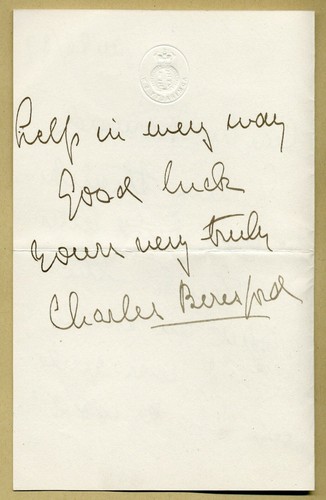 help in every way
Good luck
yours very truly
Charles Beresford